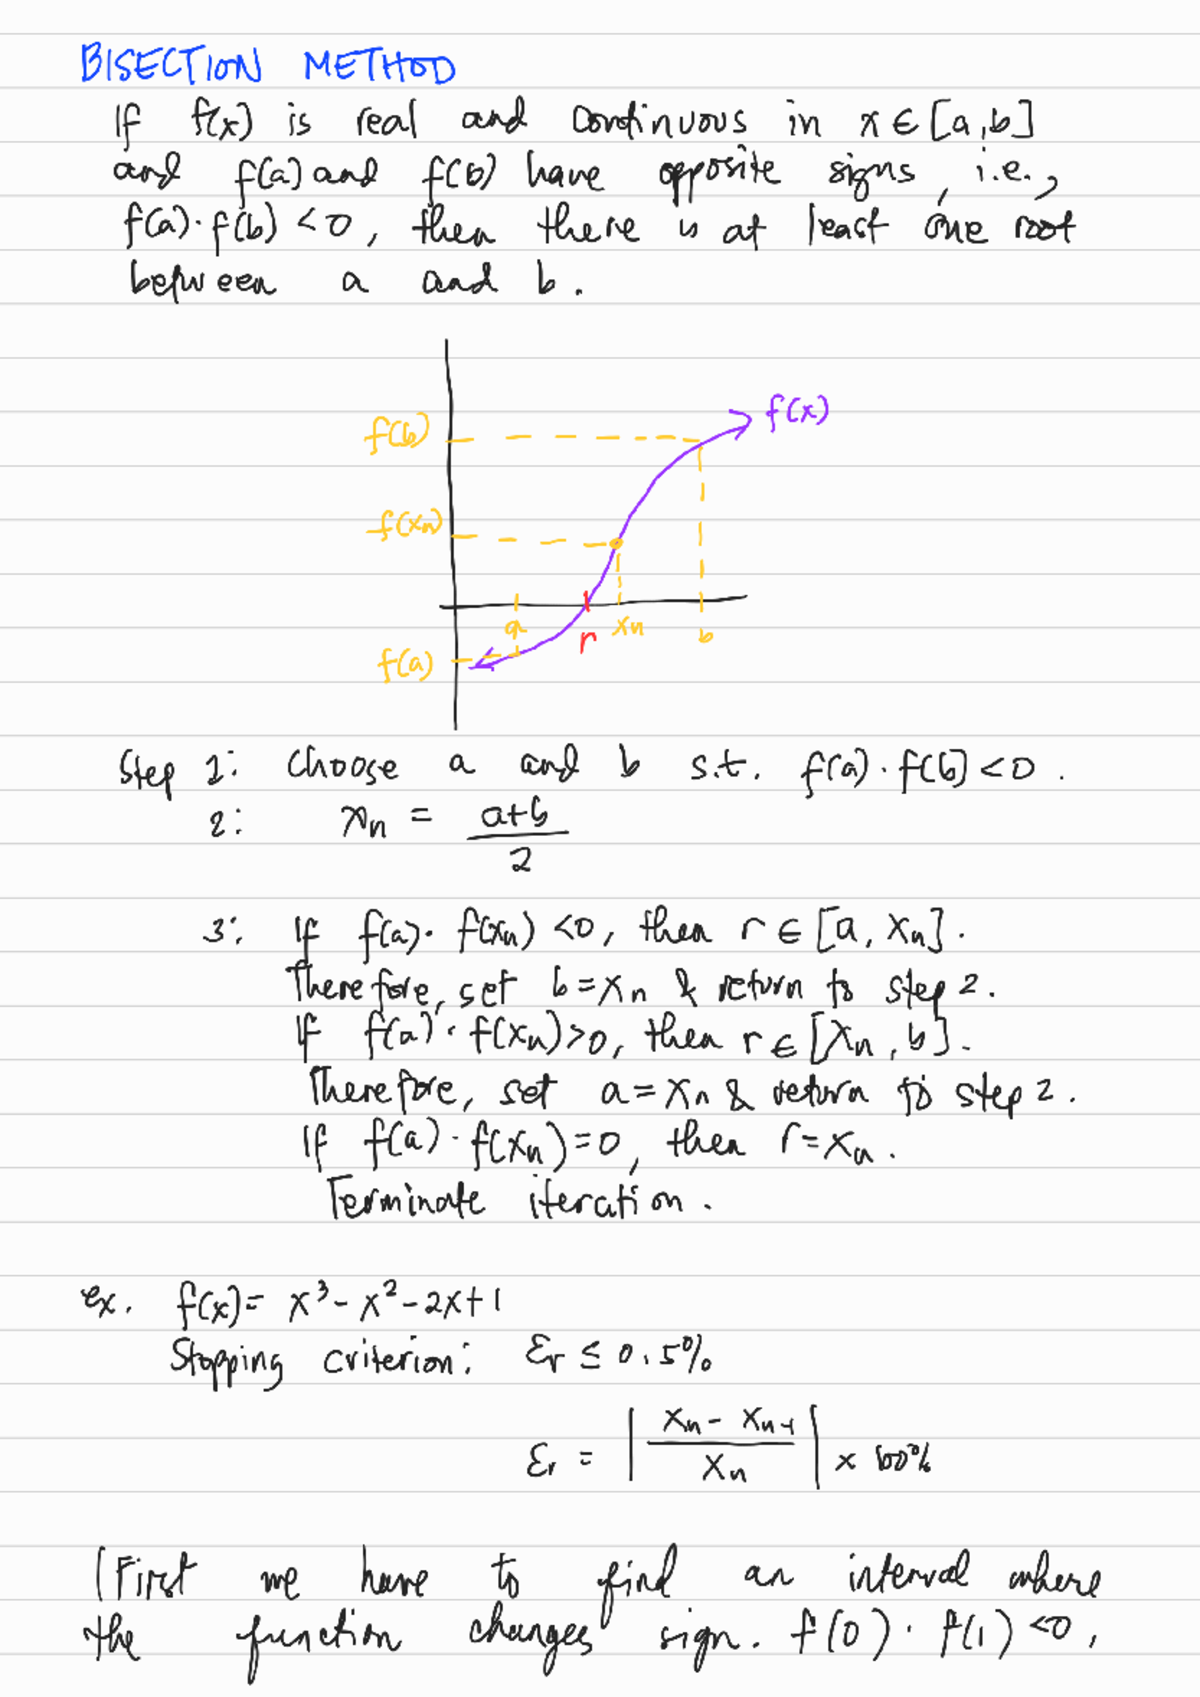 BISECTION METHOD
If f(x) is real and continuous in x ∈ [a,b]
and f(a) and f(b) have opposite signs, i.e.,
f(a)·f(b) <0, then there is at least one root
between a and b.
f(x)
f(b)
f(xn)
a r xn b
f(a)
Step 1: Choose a and b s.t. f(a)·f(b)<0.
2: xn = a+b
2
3: If f(a)·f(xn) <0, then r ∈ [a, xn].
Therefore, set b=xn & return to step 2.
If f(a)·f(xn)>0, then r ∈ [xn, b].
Therefore, set a=xn & return to step 2.
If f(a)·f(xn)=0, then r=xn.
Terminate iteration.
ex. f(x)= x³-x²-2x+1
Stopping criterion: Ɛr ≤ 0.5%
Ɛr = | xn - xn-1 | × 100%
xn
(First we have to find an interval where
the function changes sign. f(0)·f(1) <0,